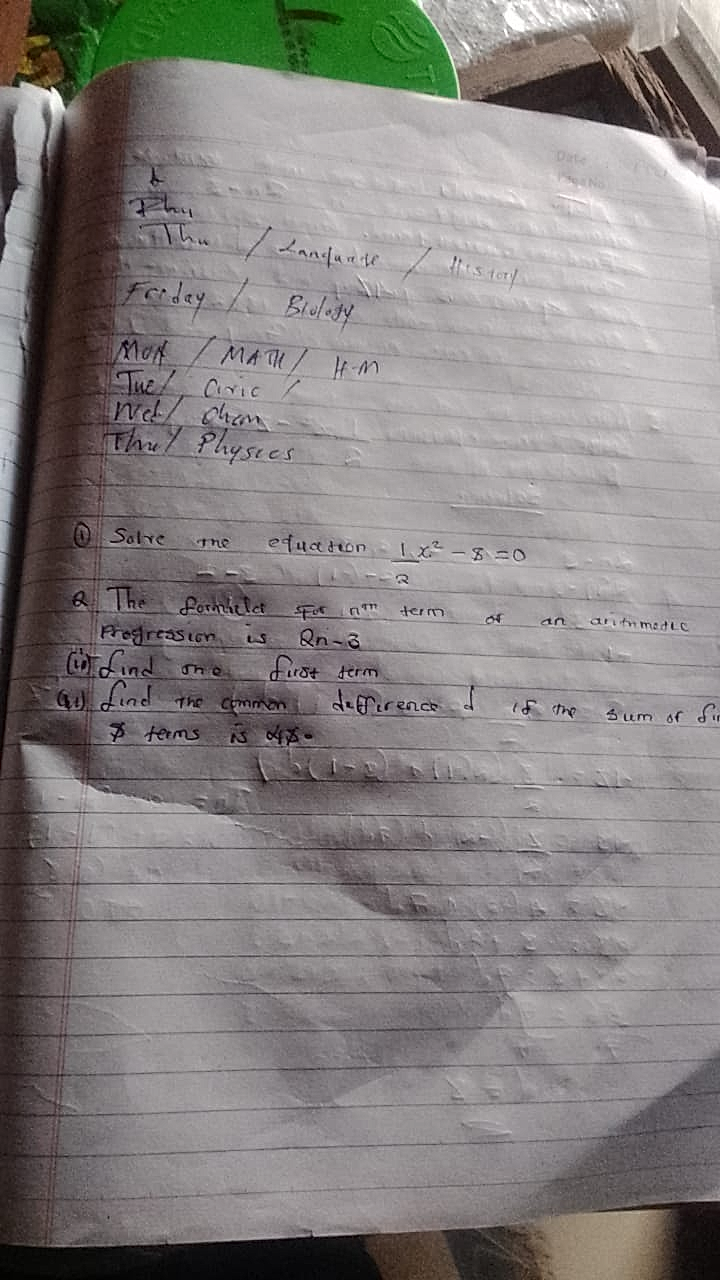 Phy
Thu / Languade / History
Friday / Biology
Mon / MATH / H-M
Tue / Civic /
Wed / Chem
Thu / Physics
Date
Page No
① Solve the equation 1/2 x² - 8 = 0
2 The for nth term of an arithmetic
Progression is 2n-3
(i) find one first term
(ii) find the common difference d if the sum of
terms is